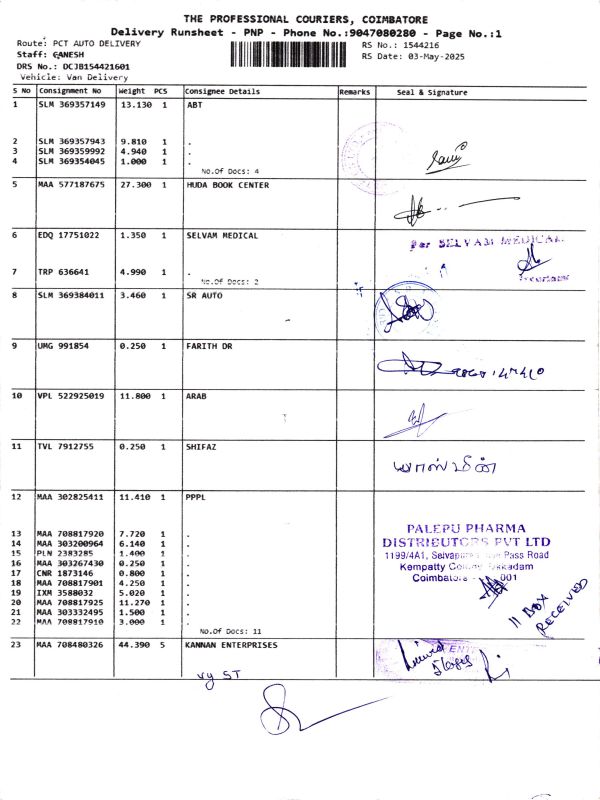 THE PROFESSIONAL COURIERS, COIMBATORE
Delivery Runsheet - PNP - Phone No.:9047080280 - Page No.:1
Route: PCT AUTO DELIVERY
RS No.: 1544216
Staff: GANESH
RS Date: 03-May-2025
DRS No.: DCJB154421601
Vehicle: Van Delivery
S No Consignment No Weight PCS Consignee Details Remarks Seal & Signature
1 SLM 369357149 13.130 1 ABT
2 SLM 369357943 9.810 1 .
3 SLM 369359992 4.940 1 .
4 SLM 369354045 1.000 1 .
No.Of Docs: 4
5 MAA 577187675 27.300 1 HUDA BOOK CENTER
6 EDQ 17751022 1.350 1 SELVAM MEDICAL
For SELVAM MEDICAL
7 TRP 636641 4.990 1 .
No.Of Docs: 2
8 SLM 369384011 3.460 1 SR AUTO
9 UMG 991854 0.250 1 FARITH DR
10 VPL 522925019 11.800 1 ARAB
11 TVL 7912755 0.250 1 SHIFAZ
யாஸ்மீன்
12 MAA 302825411 11.410 1 PPPL
13 MAA 708817920 7.720 1 .
14 MAA 303200964 6.140 1 .
15 PLN 2383285 1.400 1 .
16 MAA 303267430 0.250 1 .
17 CNR 1873146 0.800 1 .
18 MAA 708817901 4.250 1 .
19 IXM 3588032 5.020 1 .
20 MAA 708817925 11.270 1 .
21 MAA 303332495 1.500 1 .
22 MAA 708817910 3.000 1 .
No.Of Docs: 11
PALEPU PHARMA
DISTRIBUTORS PVT LTD
1199/4A1, Pass Road
Kempatty Colony, Ukkadam
Coimbatore - 001
11 BOX
RECEIVED
23 MAA 708480326 44.390 5 KANNAN ENTERPRISES